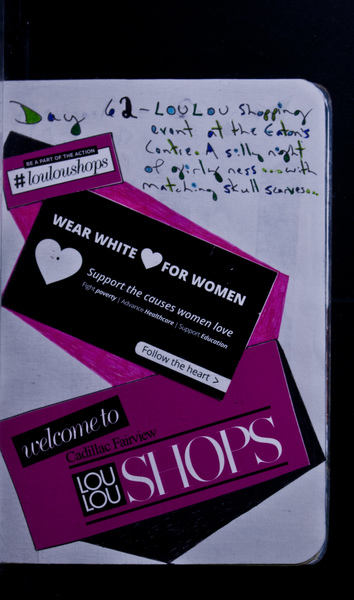 Day 62 - LOULOU Shopping
event at the Eaton's
Centre. A silly night
of girly ness ... with
matching skull scarves...
BE A PART OF THE ACTION
#louloushops
WEAR WHITE FOR WOMEN
Support the causes women love
Fight poverty | Advance Healthcare | Support Education
Follow the heart >
welcome to
Cadillac Fairview
LOU
LOU
SHOPS